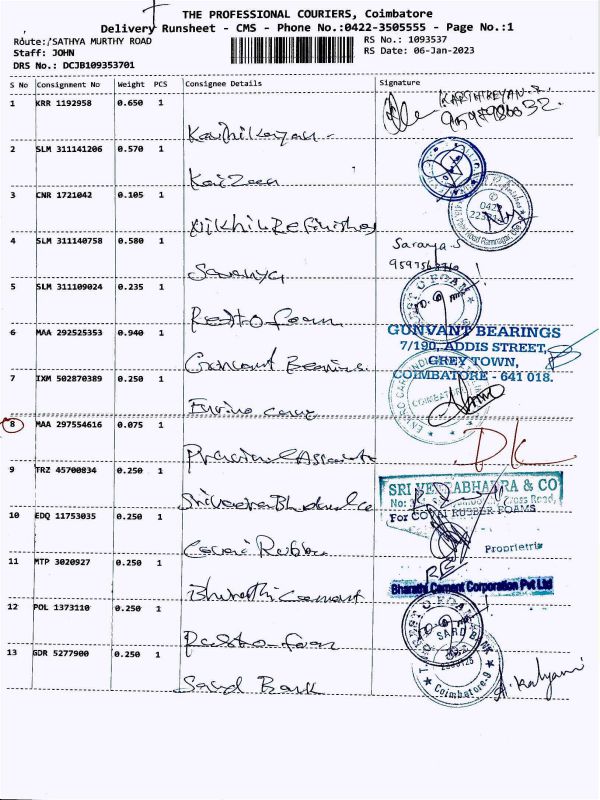 THE PROFESSIONAL COURIERS, Coimbatore
Delivery Runsheet - CMS - Phone No.:0422-3505555 - Page No.:1
Route:/SATHYA MURTHY ROAD RS No.: 1093537
Staff: JOHN RS Date: 06-Jan-2023
DRS No.: DCJB109353701
S No Consignment No Weight PCS Consignee Details Signature
1 KRR 1192958 0.650 1
KARTHIKEYAN
Karthikeyan
2 SLM 311141206 0.570 1
Kaizeen
3 CNR 1721042 0.105 1
0422
Nikhil Refinishes
4 SLM 311140758 0.580 1 Saranya.S
Saranya
5 SLM 311109024 0.235 1
Resto foam
6 MAA 292525353 0.940 1 GUNVANT BEARINGS
7/190, ADDIS STREET,
GREY TOWN,
COIMBATORE - 641 018.
Gunvant Bearings
7 IXM 502870389 0.250 1 COIMBATORE
8 MAA 297554616 0.075 1
DK
9 TRZ 45700834 0.250 1 SRI VEERABHADRA & CO
No: Cross Road,
10 EDQ 11753035 0.250 1 For COVAI RUBBER FOAMS
Proprietrix
Covai Rubber
11 MTP 3020927 0.250 1
Bharathi Cement Corporation Pvt Ltd
Bharathi Cement
12 POL 1373110 0.250 1
Resto foam
13 GDR 5277900 0.250 1
Coimbatore-9
A. Kalyani
Sard Bank